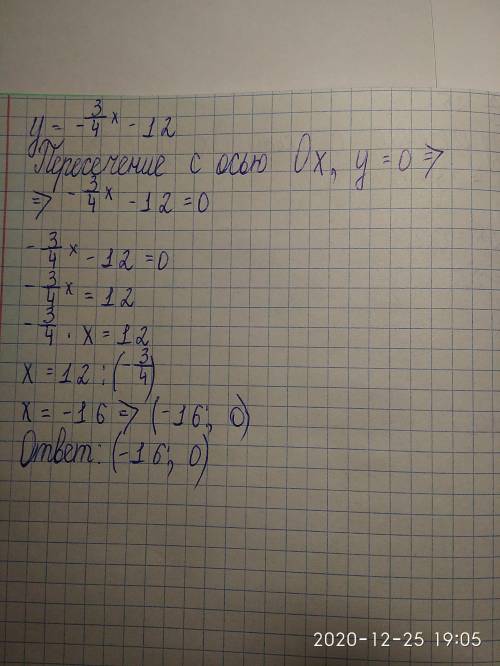 y = -3/4 x - 12
Пересечение с осью Ox, y = 0 =>
=> -3/4 x - 12 = 0
-3/4 x - 12 = 0
-3/4 x = 12
-3/4 · x = 12
x = 12 : (-3/4)
x = -16 => (-16; 0)
Ответ: (-16; 0)
2020-12-25 19:05